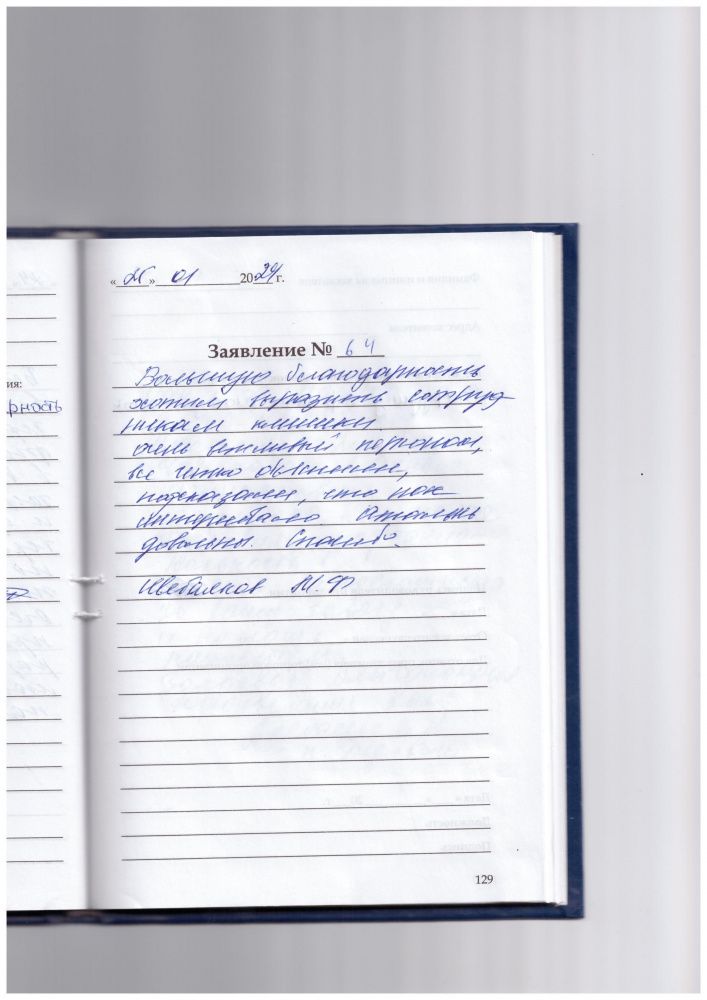 « 26 » 01 2024 г.
Заявление № 64
Большую благодарность
хотим выразить сотруд
никам клиники.
очень вежливый персонал,
все четко объяснили,
подсказали, что нас
интересовало
довольны. Спасибо.
М. Ф
ия:
рность
129